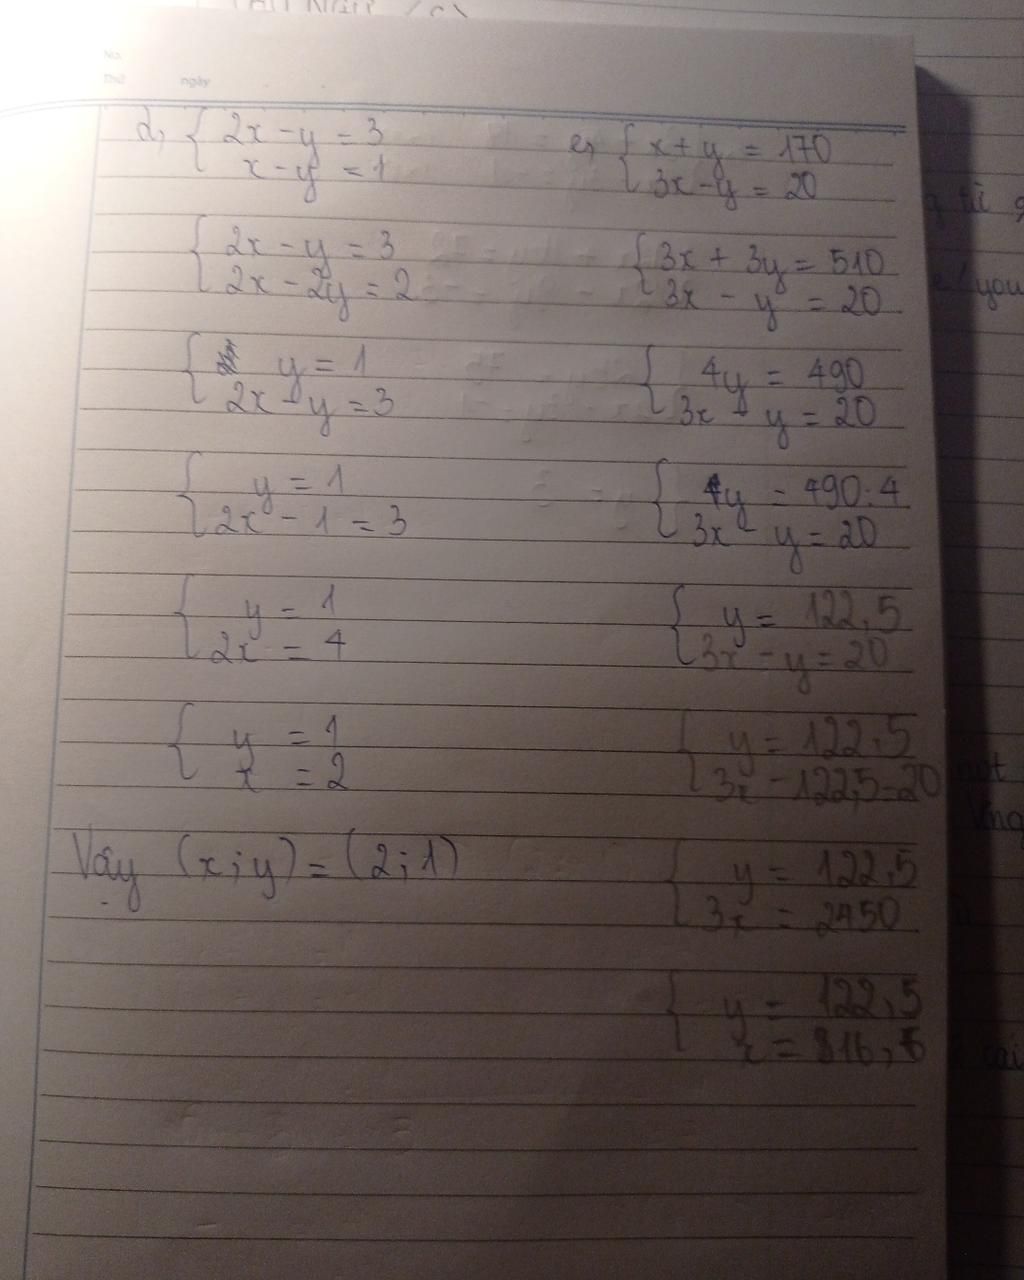 No.
Thứ ngày
d, { 2x - y = 3
x - y = 1
{ 2x - y = 3
2x - 2y = 2
{ y = 1
2x - y = 3
{ y = 1
2x - 1 = 3
{ y = 1
2x = 4
{ y = 1
x = 2
Vậy (x; y) = (2; 1)
e, { x + y = 170
3x - y = 20
{ 3x + 3y = 510
3x - y = 20
{ 4y = 490
3x - y = 20
{ 4y = 490 : 4
3x - y = 20
{ y = 122,5
3x - y = 20
{ y = 122,5
3x - 122,5 = 20
{ y = 122,5
3x = 2450
{ y = 122,5
x = 816,6
you